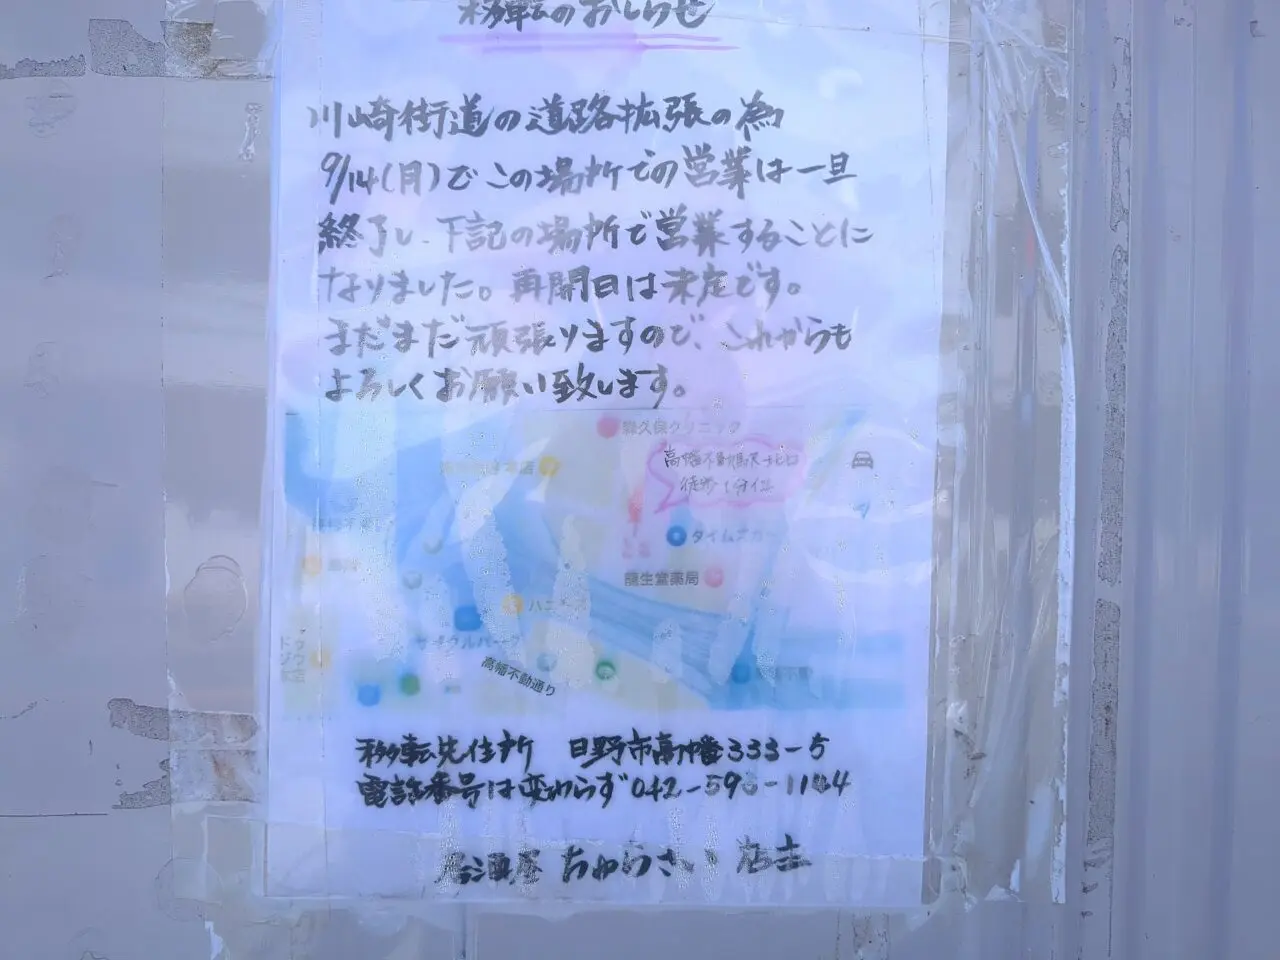 移転のおしらせ
川崎街道の道路拡張の為
9/14(月)でこの場所での営業は一旦
終了し、下記の場所で営業することに
なりました。再開日は未定です。
まだまだ頑張りますので、これからも
よろしくお願い致します。
森久保クリニック
高幡不動駅北口
徒歩1分
タイムズカー
龍生堂薬局
サイクルパーク
高幡不動通り
移転先住所 日野市高幡333-5
電話番号は変わらず
居酒屋 ちゅらさい 店主